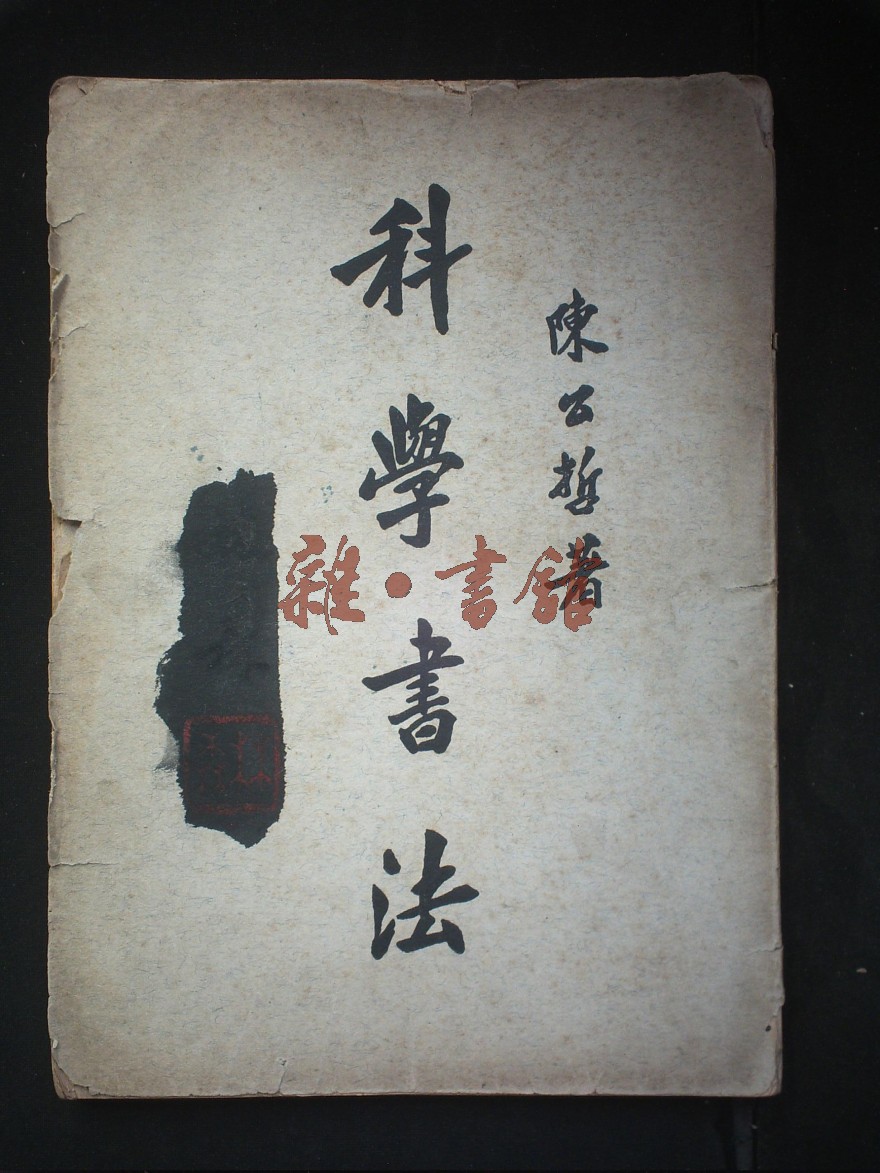 陳公哲著
科學書法
雜·書舘